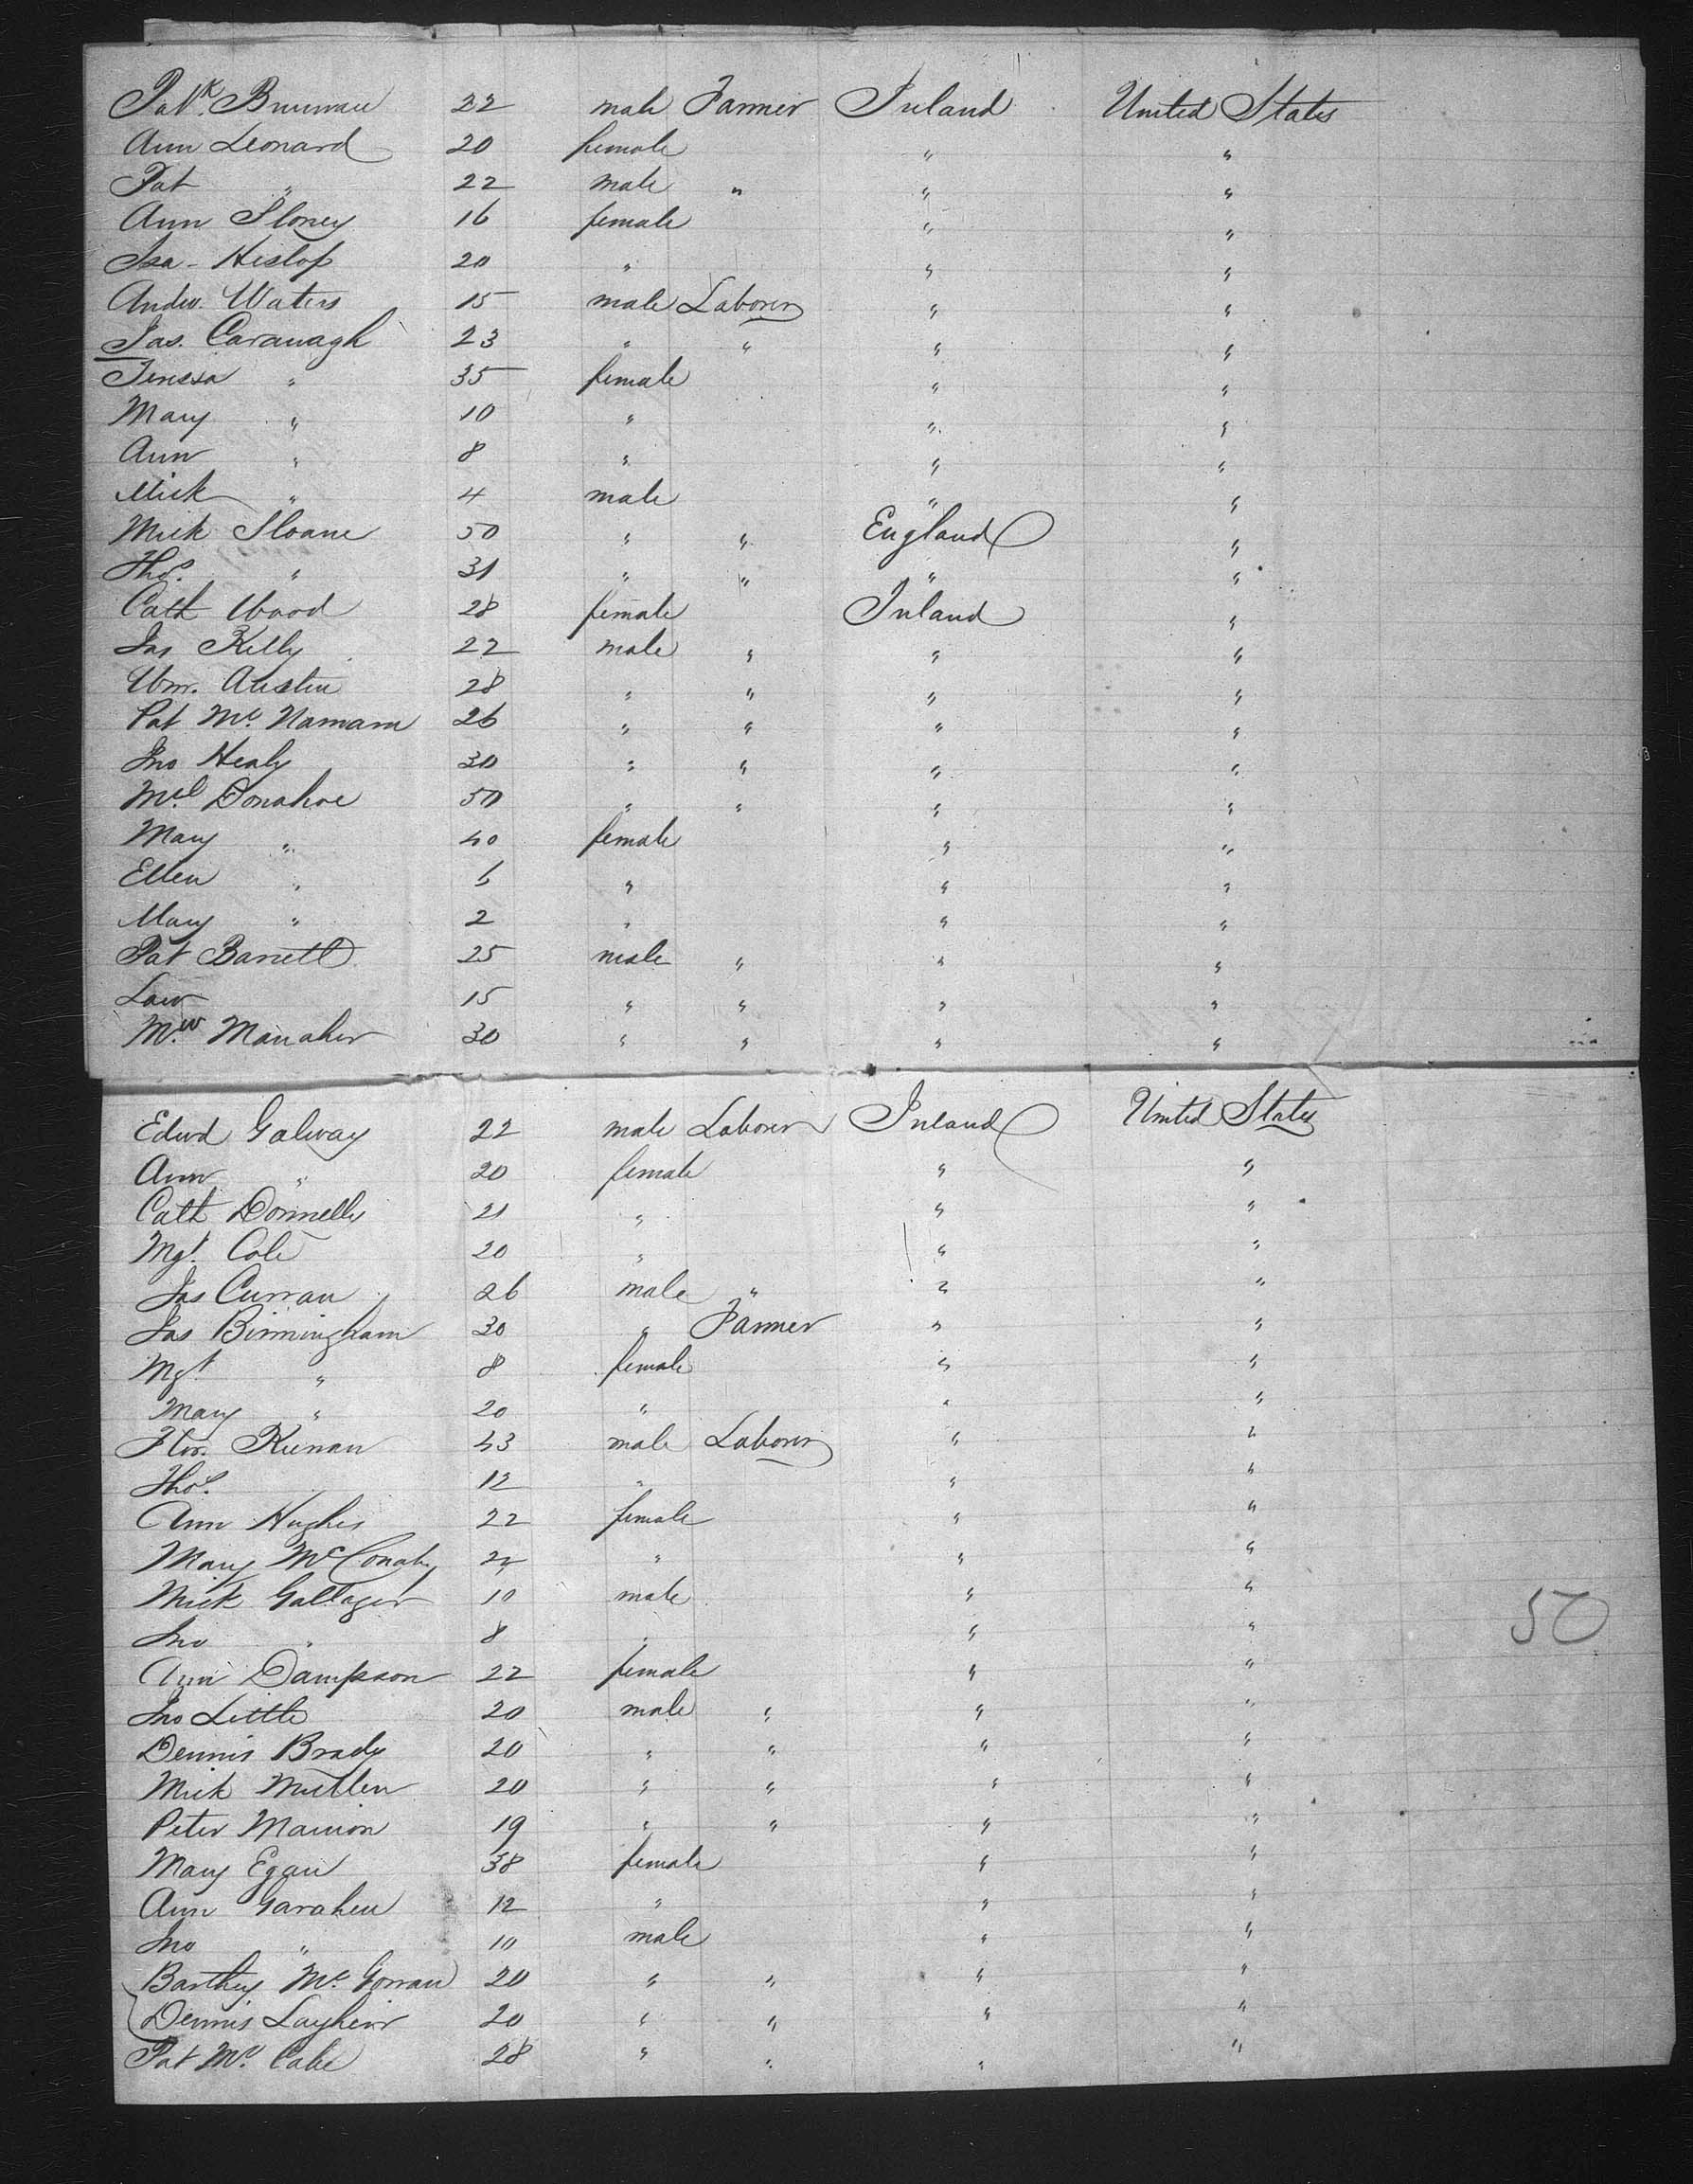 Patk. Brennan 22 male Farmer Ireland United States
Ann Leonard 20 female " "
Pat " 22 male " " "
Ann Sloney 16 female " "
Isa - Hislop 20 " " "
Andw. Waters 15 male Laborer " "
Jas. Cavanagh 23 " " " "
Teressa " 35 female " "
Mary " 10 " " "
Ann " 8 " " "
Mick " 4 male " "
Mick Sloane 50 " " England "
Thos. " 31 " " " "
Cath Wood 28 female Ireland "
Jas Kelly 22 male " " "
Wm. Austin 28 " " " "
Pat Mc. Namara 26 " " " "
Jno Healy 30 " " " "
Ml. Donahoe 50 " " " "
Mary " 40 female " "
Ellen " 6 " " "
Mary " 2 " " "
Pat Barrett 25 male " " "
Law 15 " " " "
Mw. Manaher 30 " " " "
Edwd Galway 22 male Laborer Ireland United States
Ann " 20 female " "
Cath Donnelly 21 " " "
Mgt. Cole 20 " " "
Jas Curran 26 male " " "
Jas Birmingham 30 " Farmer " "
Mgt " 8 female " "
Mary " 20 " " "
Keenan 43 male Laborer " "
Thos. 12 " " "
Ann Hughes 22 female " "
Mary McConaby " " "
Mick Gallager 10 male " "
Jno " 8 " " "
Ann Dampson 22 female " "
50
Jno Little 20 male " " "
Dennis Brady 20 " " " "
Mick Mullen 20 " " " "
Peter Manion 19 " " " "
Mary Egan 38 female " "
Ann Garahen 12 " " "
Jno " 10 male " "
Barthey Mc. Gorran 20 " " " "
Dennis Layheir 20 " " " "
Pat Mc. Cabe 28 " " " "